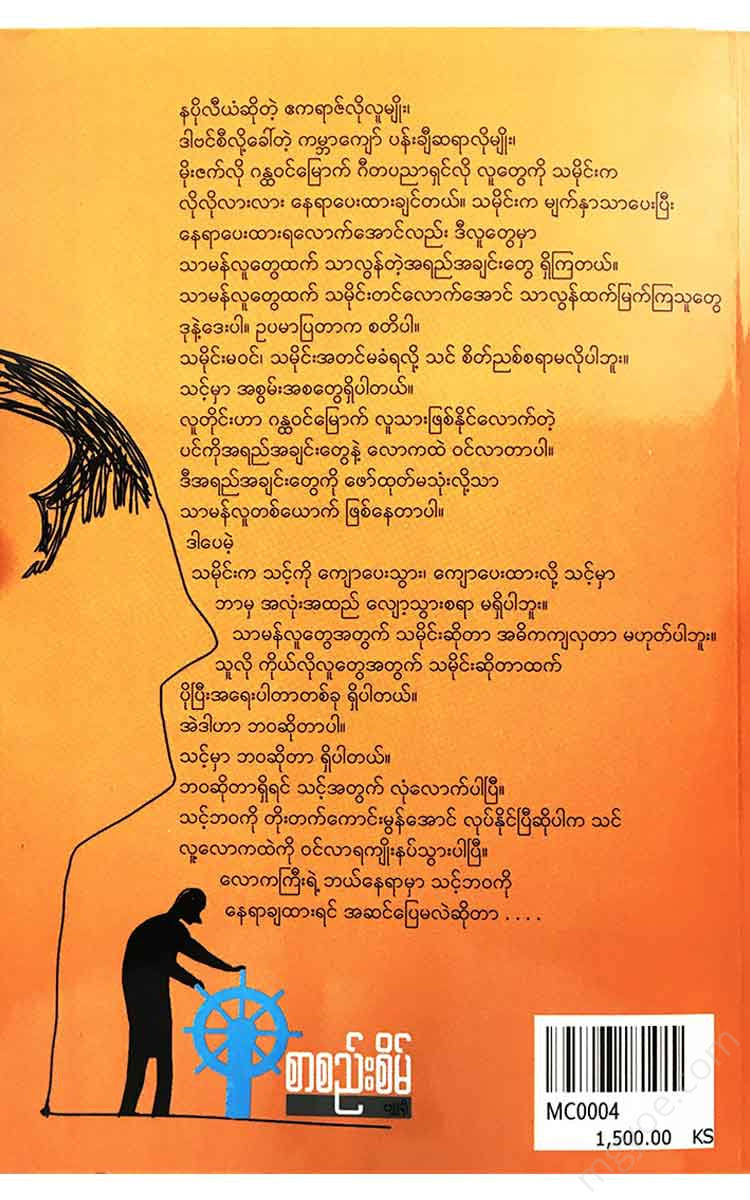 နပိုလီယံဆိုတဲ့ ဧကရာဇ်လိုလူမျိုး၊
ဒါဗင်စီလို့ခေါ်တဲ့ ကမ္ဘာကျော် ပန်းချီဆရာလိုမျိုး၊
မိုးဇက်လို ဂန္ထဝင်မြောက် ဂီတပညာရှင်လို လူတွေကို သမိုင်းက
လိုလိုလားလား နေရာပေးထားချင်တယ်။ သမိုင်းက မျက်နှာသာပေးပြီး
နေရာပေးထားရလောက်အောင်လည်း ဒီလူတွေမှာ
သာမန်လူတွေထက် သာလွန်တဲ့အရည်အချင်းတွေ ရှိကြတယ်။
သာမန်လူတွေထက် သမိုင်းတင်လောက်အောင် သာလွန်ထက်မြက်ကြသူတွေ
ဒုနဲ့ဒေးပါ။ ဥပမာပြတာက စတိပါ။
သမိုင်းမဝင်၊ သမိုင်းအတင်မခံရလို့ သင် စိတ်ညစ်စရာမလိုပါဘူး။
သင့်မှာ အစွမ်းအစတွေရှိပါတယ်။
လူတိုင်းဟာ ဂန္ထဝင်မြောက် လူသားဖြစ်နိုင်လောက်တဲ့
ပင်ကိုအရည်အချင်းတွေနဲ့ လောကထဲ ဝင်လာတာပါ။
ဒီအရည်အချင်းတွေကို ဖော်ထုတ်မသုံးလို့သာ
သာမန်လူတစ်ယောက် ဖြစ်နေတာပါ။
ဒါပေမဲ့
သမိုင်းက သင့်ကို ကျောပေးသွား၊ ကျောပေးထားလို့ သင့်မှာ
ဘာမှ အလုံးအထည် လျော့သွားစရာ မရှိပါဘူး။
သာမန်လူတွေအတွက် သမိုင်းဆိုတာ အဓိကကျလှတာ မဟုတ်ပါဘူး။
သူလို ကိုယ်လိုလူတွေအတွက် သမိုင်းဆိုတာထက်
ပိုပြီးအရေးပါတာတစ်ခု ရှိပါတယ်။
အဲဒါဟာ ဘဝဆိုတာပါ။
သင့်မှာ ဘဝဆိုတာ ရှိပါတယ်။
ဘဝဆိုတာရှိရင် သင့်အတွက် လုံလောက်ပါပြီ။
သင့်ဘဝကို တိုးတက်ကောင်းမွန်အောင် လုပ်နိုင်ပြီဆိုပါက သင်
လူ့လောကထဲကို ဝင်လာရကျိုးနပ်သွားပါပြီ။
လောကကြီးရဲ့ ဘယ်နေရာမှာ သင့်ဘဝကို
နေရာချထားရင် အဆင်ပြေမလဲဆိုတာ . . . .
စာစည်းစိမ်
MC0004
1,500.00 KS
mgzoe.com